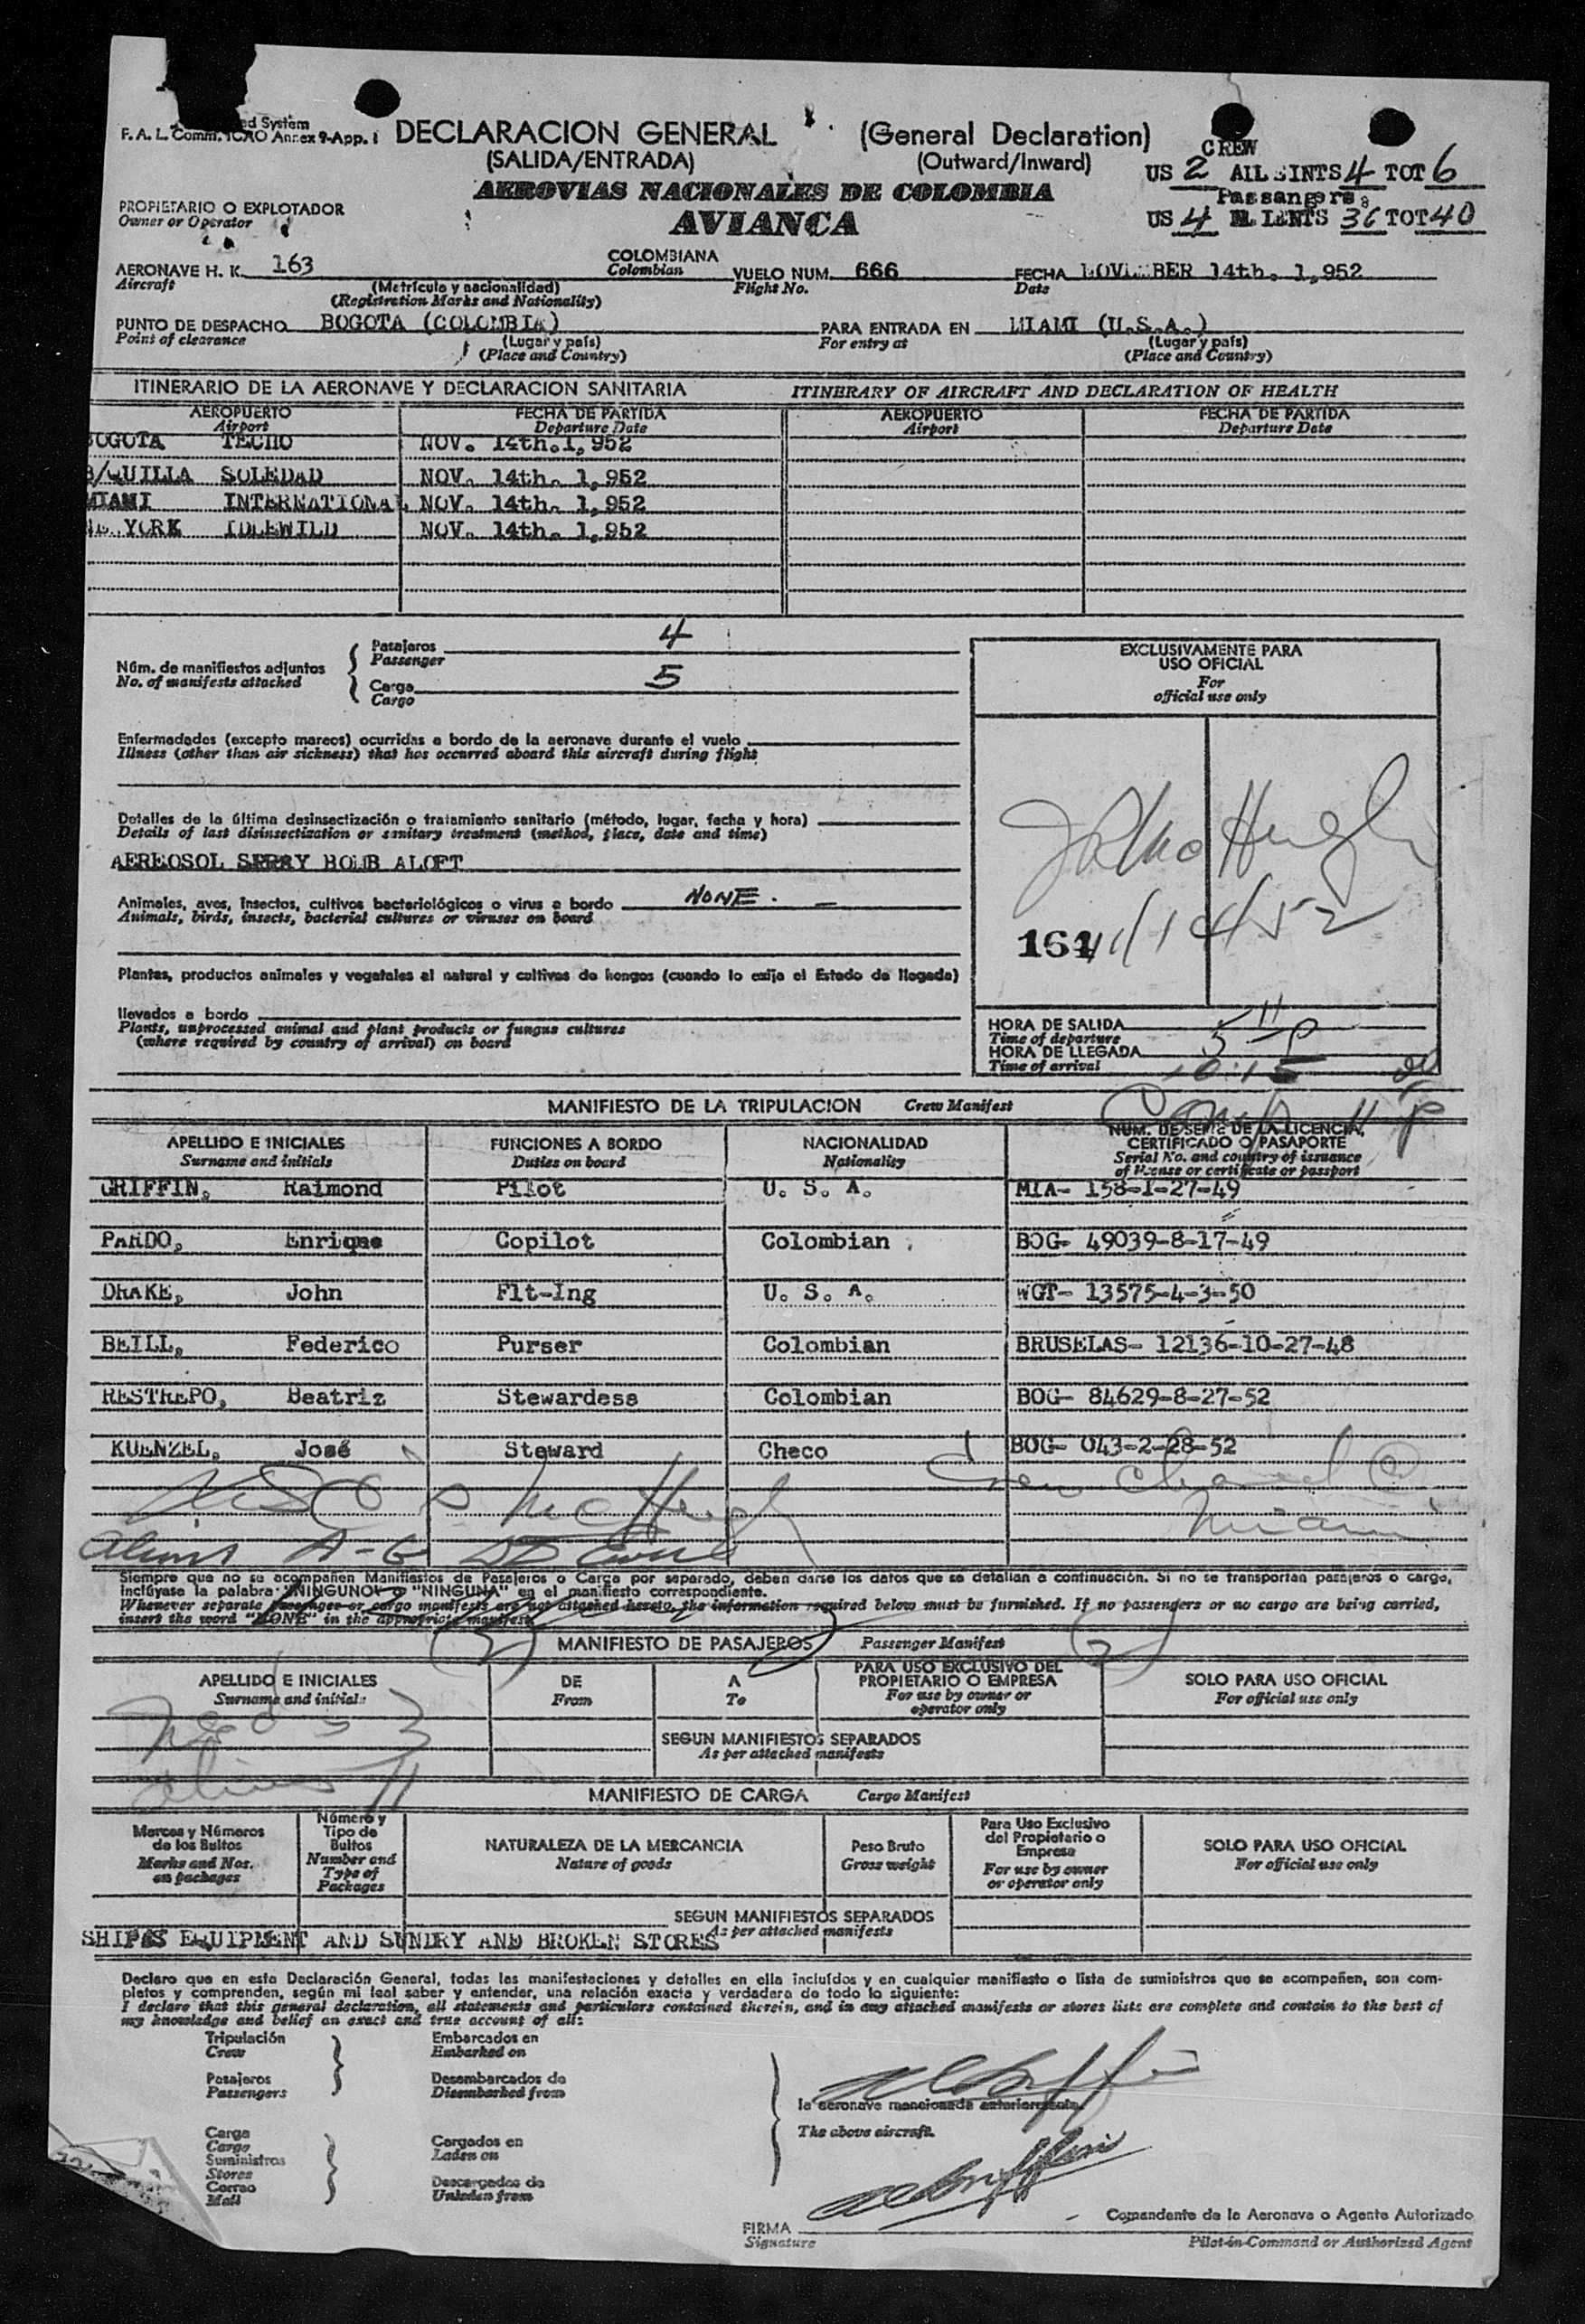 ed System
F. A. L. Comm. ICAO Annex 9-App. 1
DECLARACION GENERAL (General Declaration)
(SALIDA/ENTRADA) (Outward/Inward)
CREW
US 2 ALIENTS 4 TOT 6
Passangers
US 4 ALIENTS 36 TOT 40
AEROVIAS NACIONALES DE COLOMBIA
AVIANCA
PROPIETARIO O EXPLOTADOR
Owner or Operator
AERONAVE H. K. 163 COLOMBIANA VUELO NUM. 666 FECHA NOVEMBER 14th. 1,952
Aircraft Colombian Flight No. Date
(Matrícula y nacionalidad)
(Registration Marks and Nationality)
PUNTO DE DESPACHO BOGOTA (COLOMBIA) PARA ENTRADA EN MIAMI (U.S.A.)
Point of clearance (Lugar y país) For entry at (Lugar y país)
(Place and Country) (Place and Country)
ITINERARIO DE LA AERONAVE Y DECLARACION SANITARIA ITINERARY OF AIRCRAFT AND DECLARATION OF HEALTH
AEROPUERTO FECHA DE PARTIDA AEROPUERTO FECHA DE PARTIDA
Airport Departure Date Airport Departure Date
BOGOTA TECHO NOV. 14th.1,952
B/QUILLA SOLEDAD NOV. 14th. 1,952
MIAMI INTERNATIONAL NOV. 14th. 1,952
YORK IDLEWILD NOV. 14th. 1,952
Núm. de manifiestos adjuntos
No. of manifests attached
Pasajeros 4
Passenger
Carga 5
Cargo
EXCLUSIVAMENTE PARA
USO OFICIAL
For
official use only
Enfermedades (excepto mareos) ocurridas a bordo de la aeronave durante el vuelo
Illness (other than air sickness) that has occurred aboard this aircraft during flight
Detalles de la última desinsectización o tratamiento sanitario (método, lugar, fecha y hora)
Details of last disinsectization or sanitary treatment (method, place, date and time)
AEREOSOL SPRAY BOMB ALOFT
Animales, aves, insectos, cultivos bacteriológicos o virus a bordo NONE.
Animals, birds, insects, bacterial cultures or viruses on board
11/14/52
Plantas, productos animales y vegetales al natural y cultivos de hongos (cuando lo exija el Estado de llegada)
llevados a bordo
Plants, unprocessed animal and plant products or fungus cultures
(where required by country of arrival) on board
HORA DE SALIDA
Time of departure
HORA DE LLEGADA
Time of arrival 10:15
MANIFIESTO DE LA TRIPULACION Crew Manifest
APELLIDO E INICIALES FUNCIONES A BORDO NACIONALIDAD NUM. DE SERIE DE LA LICENCIA,
CERTIFICADO O PASAPORTE
Surname and initials Duties on board Nationality Serial No. and country of issuance
of license or certificate or passport
GRIFFIN, Raimond Pilot U. S. A. MIA- 158-1-27-49
PARDO, Enrique Copilot Colombian BOG- 49039-8-17-49
DRAKE, John Flt-Ing U. S. A. WGT- 13575-4-3-50
BEILL, Federico Purser Colombian BRUSELAS- 12136-10-27-48
RESTREPO, Beatriz Stewardess Colombian BOG- 84629-8-27-52
KUENZEL, José Steward Checo BOG- 043-2-28-52
Miami
Siempre que no se acompañen Manifiestos de Pasajeros o Carga por separado, deben darse los datos que se detallan a continuación. Si no se transportan pasajeros o carga,
inclúyase la palabra "NINGUNO" o "NINGUNA" en el manifiesto correspondiente.
Whenever separate passenger or cargo manifests are not attached hereto, the information required below must be furnished. If no passengers or no cargo are being carried,
insert the word "NONE" in the appropriate manifest.
MANIFIESTO DE PASAJEROS Passenger Manifest
APELLIDO E INICIALES DE A PARA USO EXCLUSIVO DEL SOLO PARA USO OFICIAL
PROPIETARIO O EMPRESA
Surname and initials From To For use by owner or For official use only
operator only
SEGUN MANIFIESTOS SEPARADOS
As per attached manifests
MANIFIESTO DE CARGA Cargo Manifest
Marcas y Números
de los Bultos
Marks and Nos.
on packages
Número y
Tipo de
Bultos
Number and
Type of
Packages
NATURALEZA DE LA MERCANCIA
Nature of goods
Peso Bruto
Gross weight
Para Uso Exclusivo
del Propietario o
Empresa
For use by owner
or operator only
SOLO PARA USO OFICIAL
For official use only
SEGUN MANIFIESTOS SEPARADOS
As per attached manifests
SHIPS EQUIPMENT AND SUNDRY AND BROKEN STORES
Declaro que en esta Declaración General, todas las manifestaciones y detalles en ella incluídos y en cualquier manifiesto o lista de suministros que se acompañen, son com-
pletos y comprenden, según mi leal saber y entender, una relación exacta y verdadera de todo lo siguiente:
I declare that this general declaration, all statements and particulars contained therein, and in any attached manifests or stores lists are complete and contain to the best of
my knowledge and belief an exact and true account of all:
Tripulación Embarcados en
Crew Embarked on
Pasajeros Desembarcados de
Passengers Disembarked from
la aeronave mencionada anteriormente.
The above aircraft.
Carga
Cargo Cargados en
Suministros Laden on
Stores
Correo Descargados de
Mail Unladen from
Comandante de la Aeronave o Agente Autorizado
FIRMA
Signature Pilot-in-Command or Authorized Agent